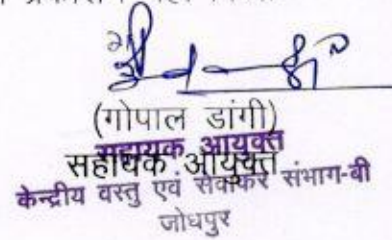 (गोपाल डांगी)
सहायक आयुक्त
सहायक आयुक्त
केन्द्रीय वस्तु एवं सेवाकर संभाग-बी
जोधपुर